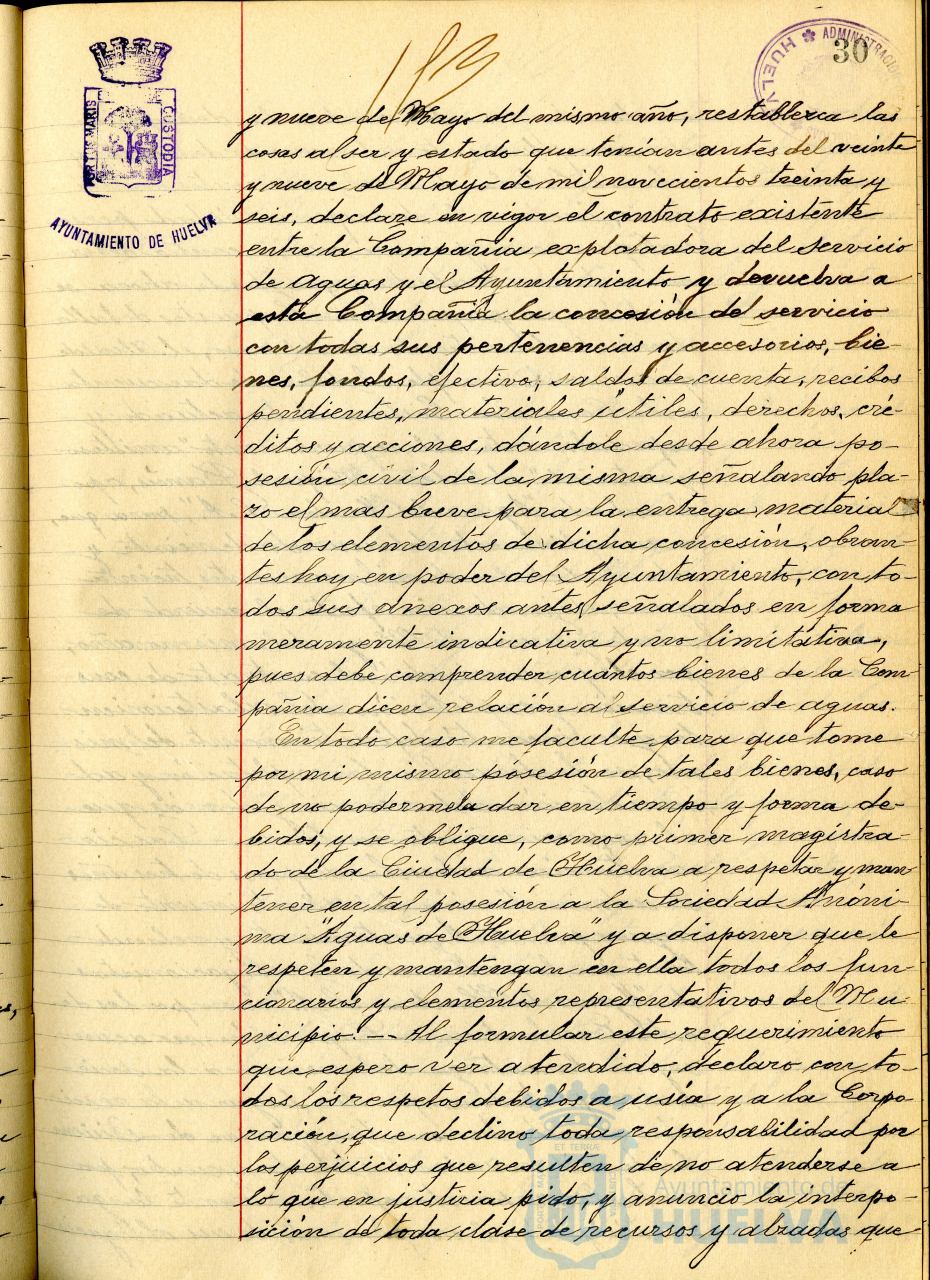 153
ADMINISTRACION
HUELVA
30
PORTUS MARIS
CUSTODIA
AYUNTAMIENTO DE HUELVA
y nueve de Mayo del mismo año, restablezca las
cosas al ser y estado que tenían antes del veinte
y nueve de Mayo de mil novecientos treinta y
seis, declare en vigor el contrato existente
entre la Compañia explotadora del servicio
de aguas y el Ayuntamiento y devuelva a
esta Compañia la concesión del servicio
con todas sus pertenencias y accesorios, bie-
nes, fondos, efectivo, saldos de cuenta, recibos
pendientes, materiales útiles, derechos, cré-
ditos y acciones, dándole desde ahora po-
sesión civil de la misma señalando pla-
zo el mas breve para la entrega material
de los elementos de dicha concesión, obran-
tes hoy en poder del Ayuntamiento, con to-
dos sus anexos antes señalados en forma
meramente indicativa y no limitativa,
pues debe comprender cuantos bienes de la Com
pañia dicen relación al servicio de aguas.
En todo caso me faculte para que tome
por mi mismo posesión de tales bienes, caso
de no podermela dar en tiempo y forma de-
bidos, y se oblique, como primer magistra-
do de la Ciudad de Huelva a respetar y man
tener en tal posesión a la Sociedad Anóni-
ma "Aguas de Huelva" y a disponer que le
respeten y mantengan en ella todos los fun-
cionarios y elementos representativos del Mu-
nicipio. — Al formular este requerimiento
que espero ver atendido, declaro con to-
dos los respetos debidos a usía y a la Corpo
ración, que declino toda responsabilidad por
los perjuicios que resulten de no atenderse a
lo que en justicia pido, y anuncio la interpo-
sición de toda clase de recursos y alzadas que
Ayuntamiento de
HUELVA